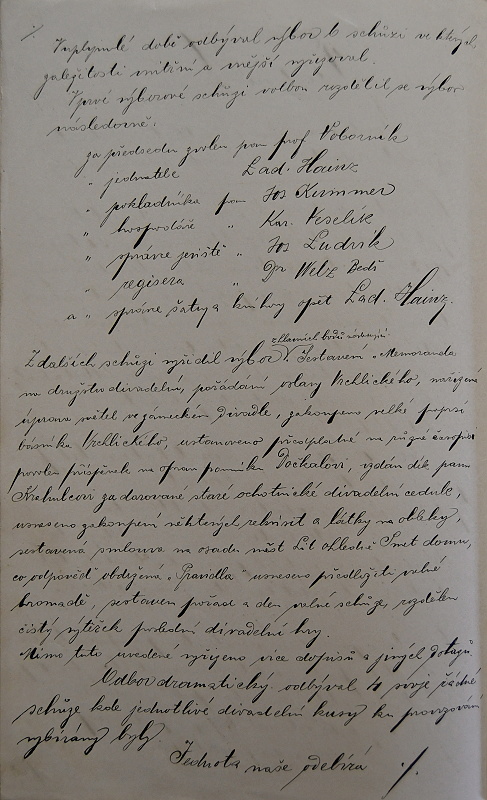 V uplynulé době odbýval výbor 6 schůzí ve kterých
záležitosti vnitřní a vnější vyřizoval.
V prvé výborové schůzi volbou rozdělil se výbor
následovně.
za předsedu zvolen pan prof Voborník
" jednatele Lad. Hainz
" pokladníka pan Jos Kummer
" hospodáře " Kar. Veselík
" správce jeviště " Jos Ludvík
" regisera " Dr Welz Bedř
a " správce šatny a knihovny opět Lad. Hainz.
Z dalších schůzí vyřídil výbor z hlavních bodů následující
Sestavení "Memoranda
na družstvo divadelní, pořádání oslavy Vrchlického, nařízena
úprava světel v zámeckém divadle, zakoupeno velké poprsí
básníka Vrchlického, ustanoveno předplatné na různé časopisy
povolen příspěvek na opravu pomníku Dočkalovi, vzdán dík panu
Krehulcovi za darované staré ochotnické divadelní cedule,
usneseno zakoupení některých rekvisit a látky na obleky,
sestavena smlouva na osadu měst Lit ohledně domu,
co odpověď obdržená "Pravidla" usneseno předložiti valné
hromadě, sestaven pořad a den valné schůze, rozdělen
čistý výtěžek poslední divadelní hry.
Mimo tuto uvedené vyřízeno více dopisů a jiných dotazů.
Odbor dramatický odbýval 4 svoje řádné
schůze kde jednotlivé divadelní kusy ku provozování
vybírány byly.
Jednota naše odebírá ./.